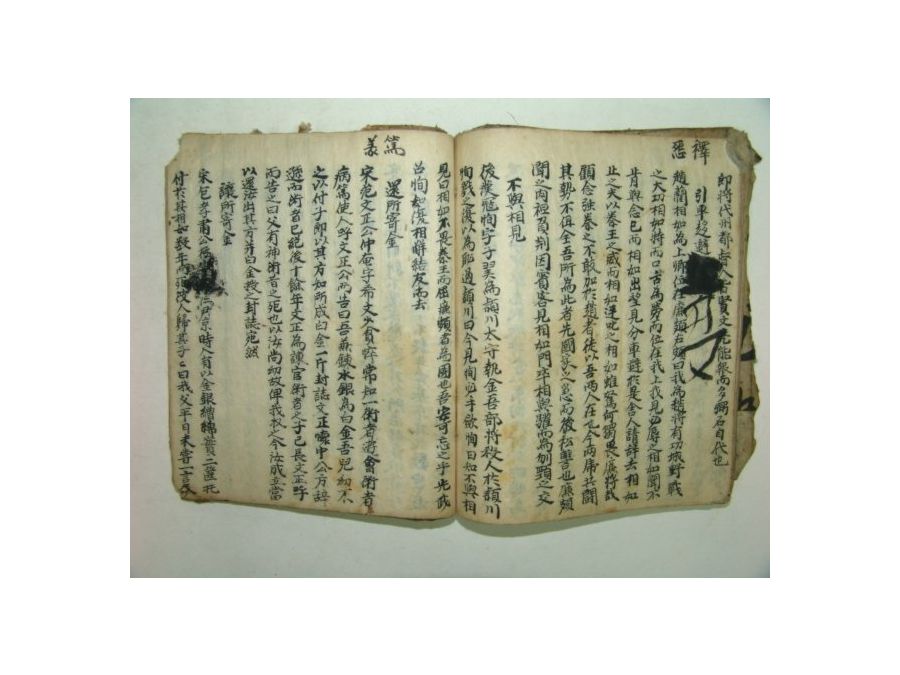 釋
怨
即將代州都
賢文
引車趍避
趙藺相如為上卿位在廉頗右頗曰我為趙將有功城野戰
之大功相如持而口舌為勞而位在我上我見必辱之相如聞不
肯與念已而相如出望見分車避於是舍人請辞去相如
止之夫以秦王之威而相如逆叱之相如雖駑何獨畏廉將哉
顧念強秦之不敢加於趙者徒以吾兩人在也今両席共鬪
其勢不俱全吾所為此者先國家之急而後松讐也廉頗
聞之肉袒負荆因賓客見相如門卒相與驩而為刎頸之交
不與相見
後漢冠恂字子翼為頴川太守執金吾部將殺人於頴川
恂戮之復以為恥過頴川曰今見恂必手欲恂曰如不與相
見曰相如不畏秦王而屈廉頗者為國也吾安可忘之乎光武
召恂如復相解結友而去
篤
義
還所寄金
宋范文正公仲俺字希文少貧悴常知一術者游會術者
病篤使人呼文正公而告曰吾燕鍊水銀為白金吾兒幼不
之以付子即以其方如所成白金一斤封誌文正懷中公方辞
遜而術者已絕後十餘年文正為諫官術者之子已長文正呼
而告之曰父有神術昔之死也以汝尚幼故俾我收之今汝成立當
以還汝出其方并白金授之封誌宛然
讓所寄金
宋包孝肅公
尹京時人有以金銀繒綿
二篋托
付於其相如數年而
沒人歸其子子曰我父平日未嘗一言